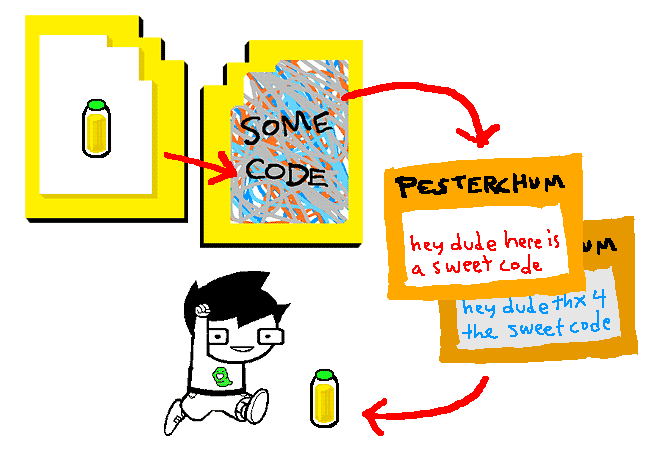 SOME
CODE
PESTERCHUM
hey dude here is
a sweet code
UM
hey dude thx 4
the sweet code